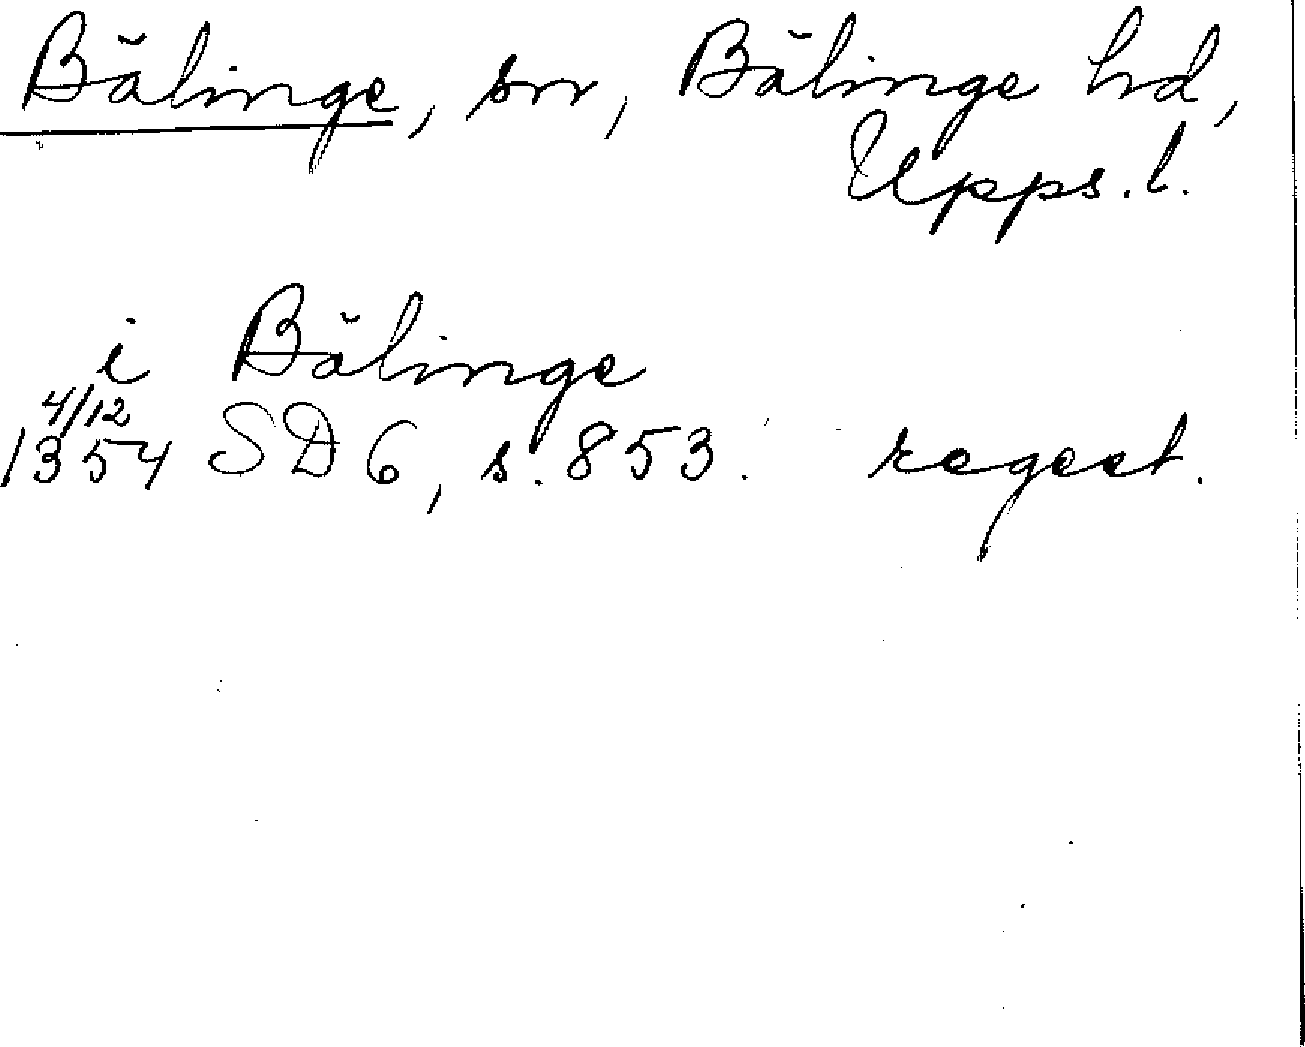 Bälinge, sn, Bälinge hd,
Upps. l.
i Bälinge
4/12
1354 SD 6, s. 853. regest.